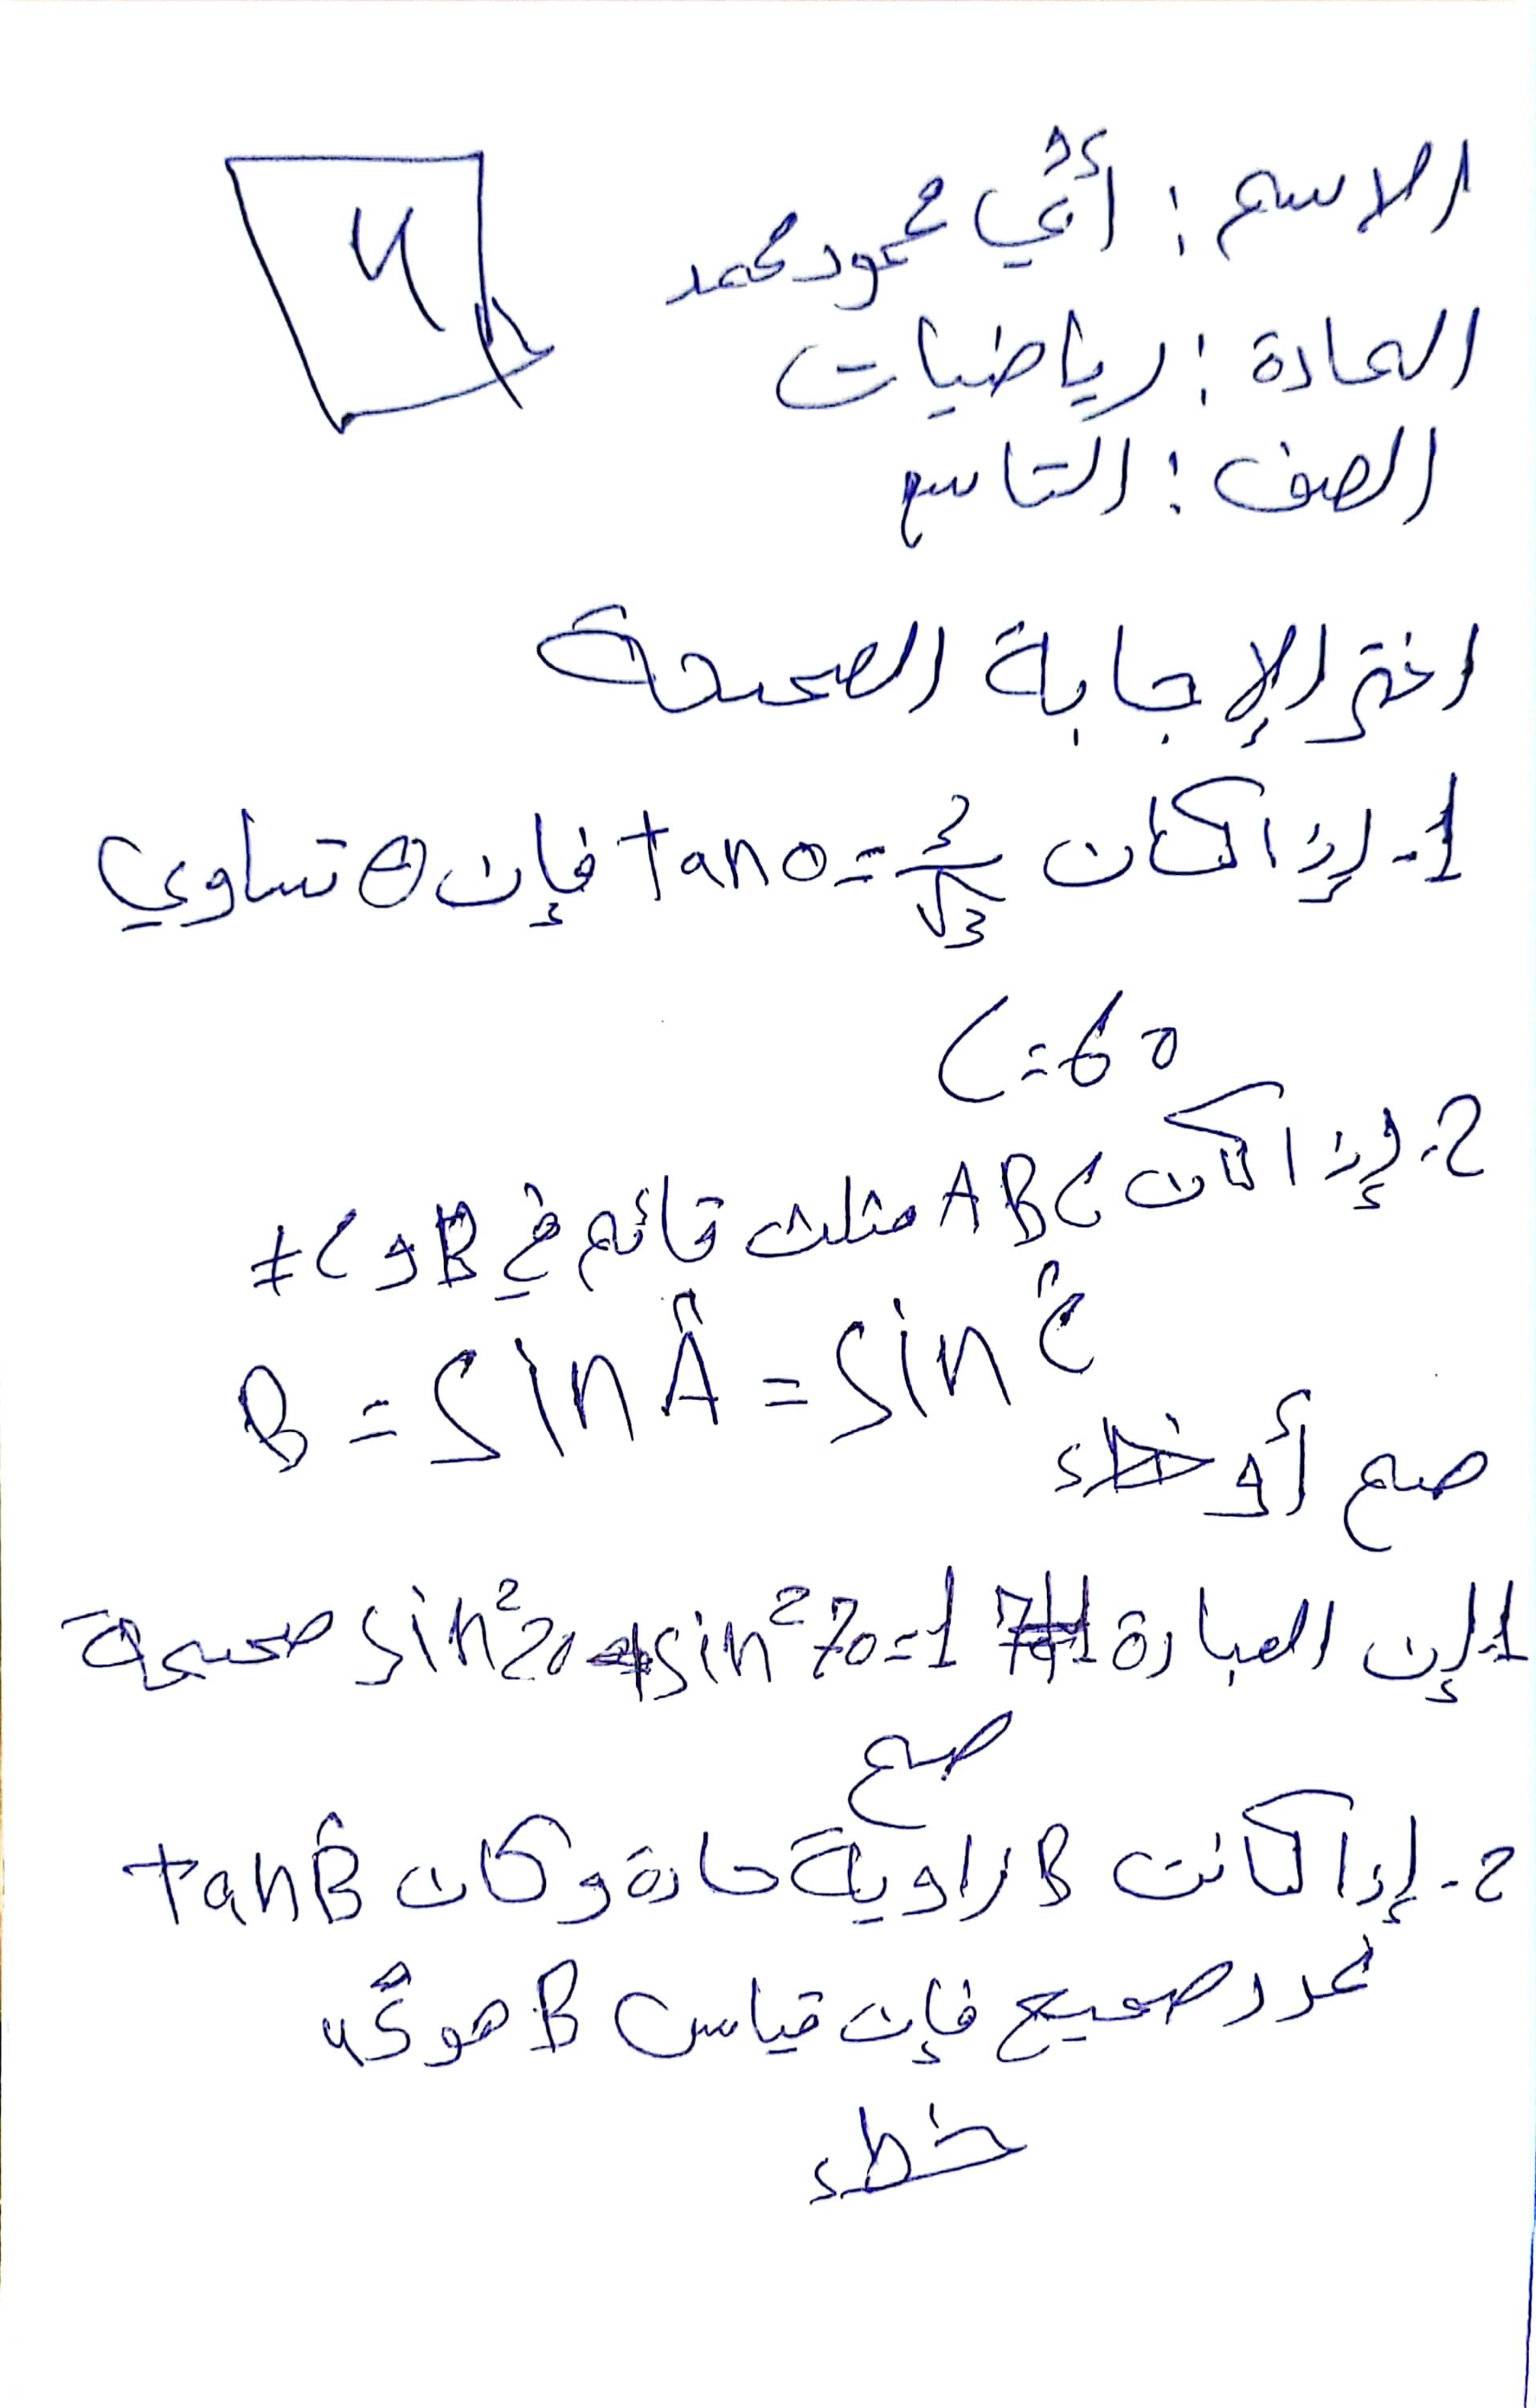 الاسم: أُبي محمود محمد
المادة: رياضيات
الصف: التاسع
اختر الإجابة الصحيحة
1- إذا كان tan θ = 3/√3 فإن θ تساوي
C = 60
2- إذا كان ABC مثلث قائم في B و C ≠
B = sin Â = sin Ĉ
صح أو خطء
1- إن العبارة sin²20 + sin²70 = 1 صحيحة
صح
2- إذا كانت B زاوية حادة وكان tan B̂
عدد صحيح فإن قياس B هو
خطء